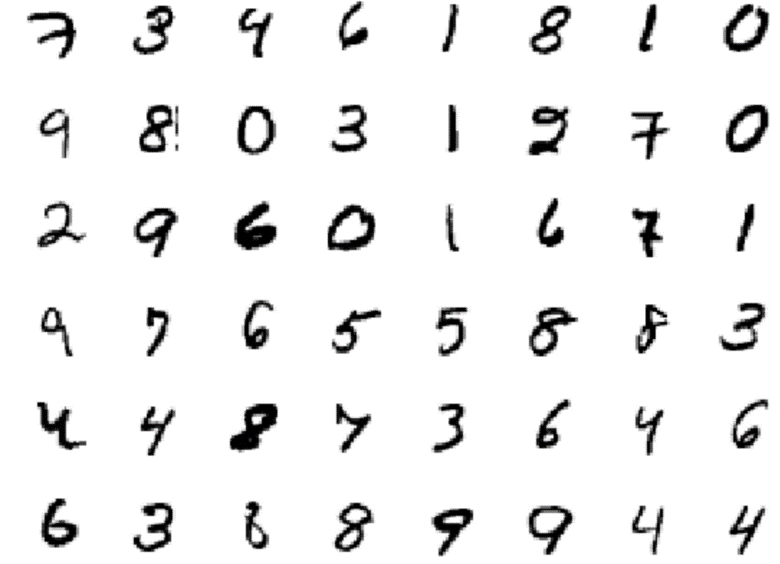 7 3 4 6 1 8 1 0
9 8 0 3 1 2 7 0
2 9 6 0 1 6 7 1
9 7 6 5 5 8 8 3
4 4 8 7 3 6 4 6
6 3 8 8 9 9 4 4